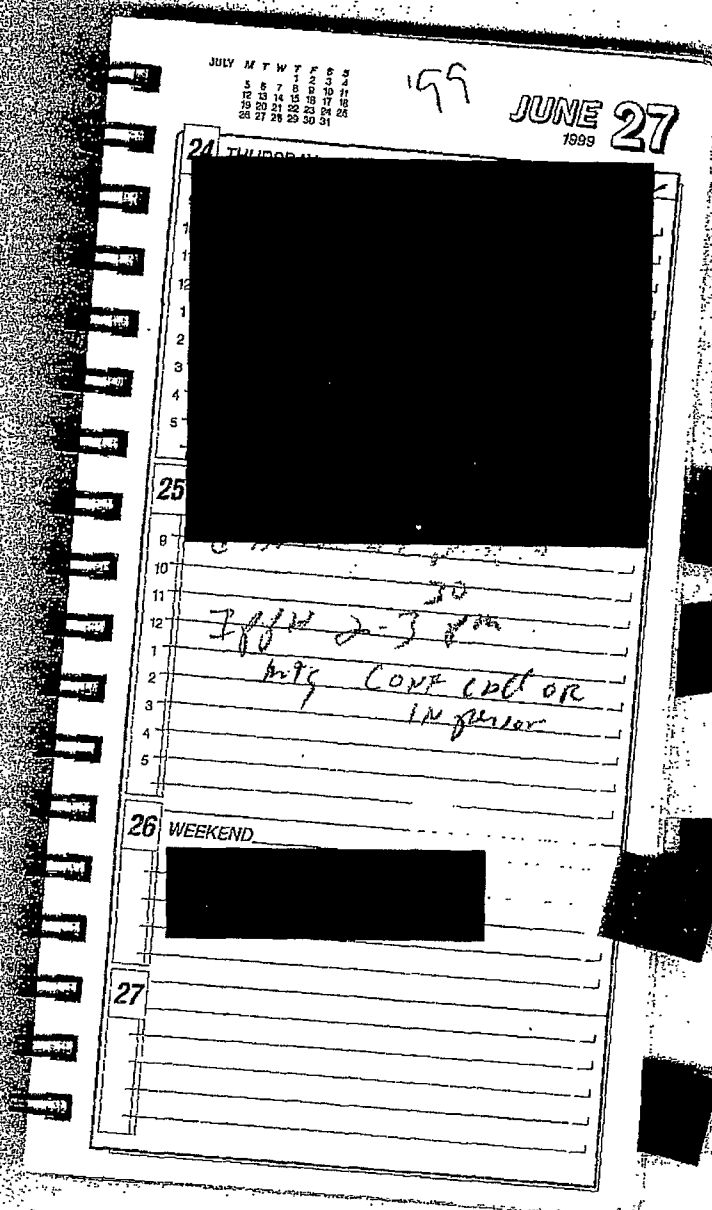 JULY M T W T F S S
1 2 3 4
5 6 7 8 9 10 11
12 13 14 15 16 17 18
19 20 21 22 23 24 25
26 27 28 29 30 31
'99
JUNE 27
1999
24 THURSDAY
1
2
3
4
5
25
9
10
11 30
12 2-3 pm
1
2 mtg CONF call OR
3 IN person
4
5
26 WEEKEND
27